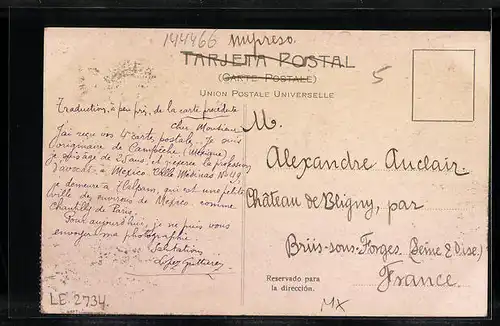 194466 impreso.
TARJETA POSTAL
(CARTE POSTALE)
UNION POSTALE UNIVERSELLE
5
Traduction, à peu près, de la carte précédente
Cher Monsieur
J'ai reçu vos 4 carte postale. Je suis
originaire de Campêche (Mexique)
Je suis âgé de 25 ans, et j'exerce la profession
d'avocat, à Mexico. Calle Medinas No 49
Je demeure à Tlalpam, qui est une petite
ville des environs de Mexico, comme
Chantilly de Paris.
Pour aujourd'hui, je ne puis vous
envoyer ma photographie
Salutations
Lopez Guttierez
M.
Alexandre Auclair.
Château de Bligny, par
Briis-sous-Forges. (Seine & Oise.)
France.
Reservado para
la dirección.
LE 2734.
MX